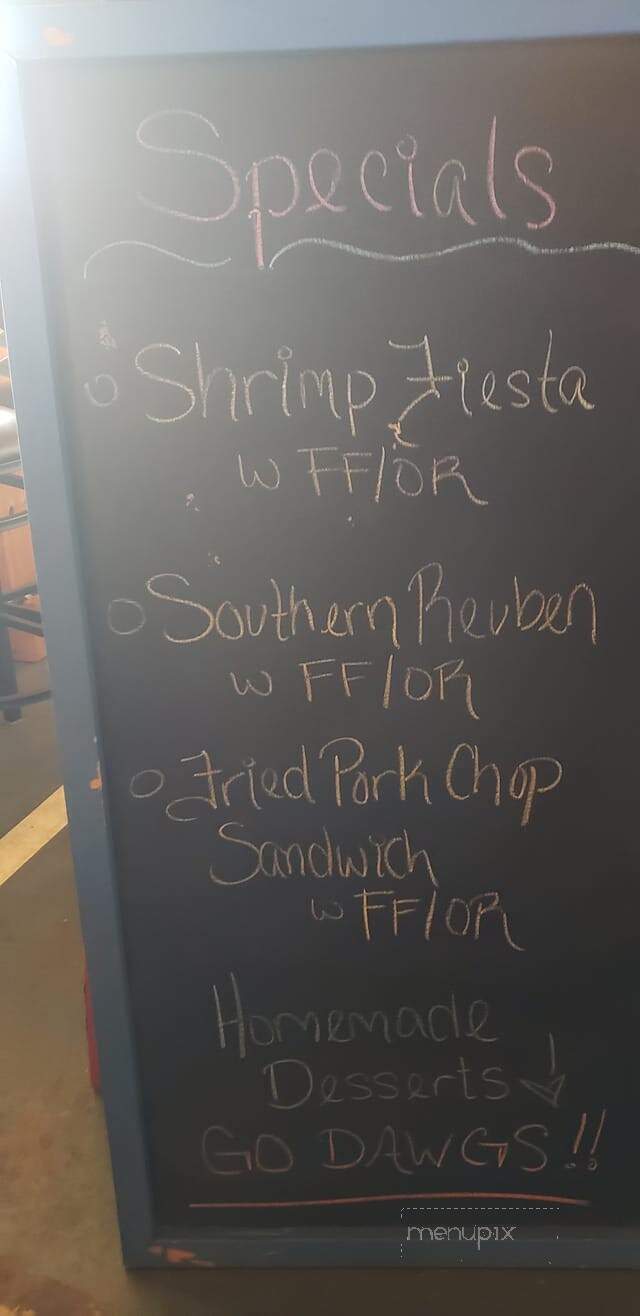 Specials
Shrimp Fiesta
w FF/OR
Southern Reuben
w FF/OR
Fried Pork Chop
Sandwich
w FF/OR
Homemade
Desserts ↓
GO DAWGS!!
menupix